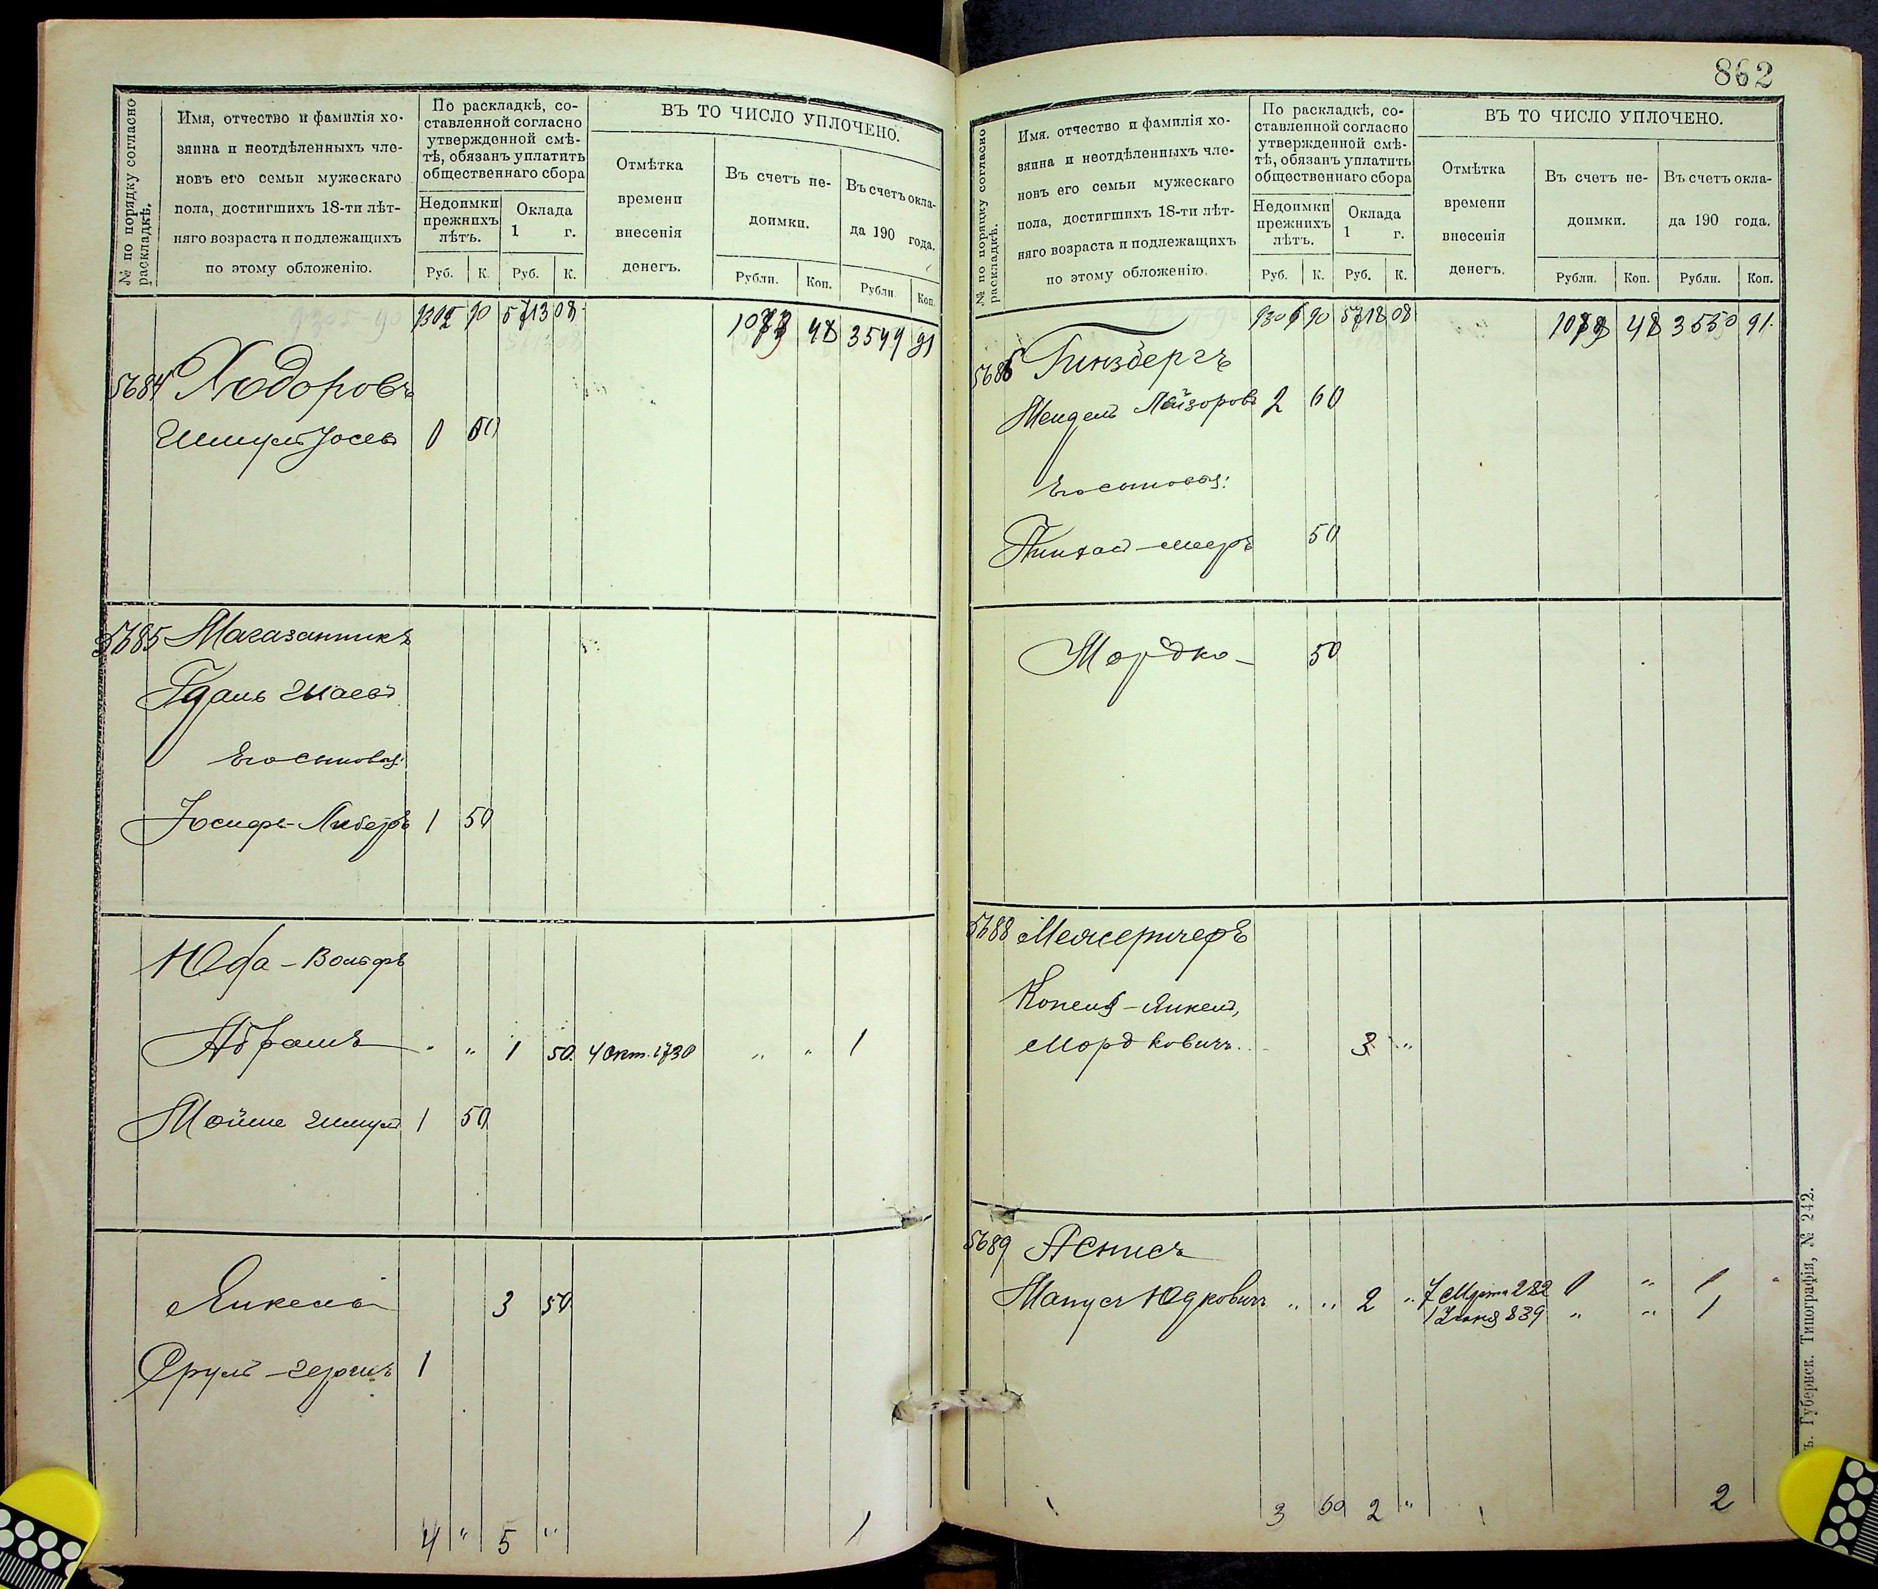 № по порядку согласно раскладкѣ.
Имя, отчество и фамилія хо-
зяина и неотдѣленныхъ чле-
новъ его семьи мужескаго
пола, достигшихъ 18-ти лѣт-
няго возраста и подлежащихъ
по этому обложенію.
По раскладкѣ, со-
ставленной согласно
утвержденной смѣ-
тѣ, обязанъ уплатить
общественнаго сбора
Недоимки прежнихъ лѣтъ.
Оклада 1 г.
Руб. К. Руб. К.
ВЪ ТО ЧИСЛО УПЛОЧЕНО.
Отмѣтка времени внесенія денегъ.
Въ счетъ не-
доимки.
Въ счетъ окла-
да 190 года.
Рубли. Коп. Рубли Коп.
90 5713 08 48 3549 91
5684 Ходоровъ
Шмуль Іосевъ 50
5685 Магазанникъ
Гдаль Шаевъ
Его сыновья:
Іосифъ-Либеръ 1 50
Юда-Вольфъ
Абрамъ " " 1 50 4 Окт. 1730 " " 1
Мойше Шмуль 1 50
Янкель 3 50
Сруль-Гершъ 1
4 " 5 " 1
862
№ по порядку согласно раскладкѣ.
Имя, отчество и фамилія хо-
зяина и неотдѣленныхъ чле-
новъ его семьи мужескаго
пола, достигшихъ 18-ти лѣт-
няго возраста и подлежащихъ
по этому обложенію.
По раскладкѣ, со-
ставленной согласно
утвержденной смѣ-
тѣ, обязанъ уплатить
общественнаго сбора
Недоимки прежнихъ лѣтъ.
Оклада 1 г.
Руб. К. Руб. К.
ВЪ ТО ЧИСЛО УПЛОЧЕНО.
Отмѣтка времени внесенія денегъ.
Въ счетъ не-
доимки.
Въ счетъ окла-
да 190 года.
Рубли. Коп. Рубли. Коп.
90 5718 08 48 3550 91
5686 Гинзбергъ
Мендель Лейзоровъ 2 60
Его сыновья:
Пинхас-Мееръ 50
Мордко 50
5688 Межеричеръ
Копель-Янкель
Мордковичъ 3 "
5689 Аснисъ
Манусъ Юдковичъ " " 2 " 7 Марта 282 " 1
1 Іюня 839 " " 1
3 60 2 " 2
Губернск. Типографія, № 242.